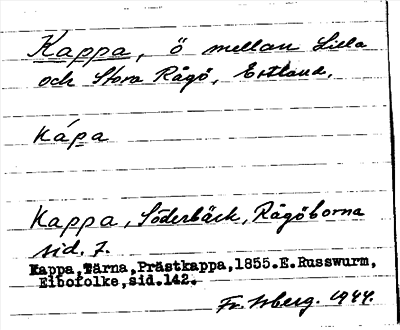 Kappa, ö mellan Lilla
och Stora Rågö, Estland.
kápa
Kappa, Söderbäck, Rågöborna
sid. 7.
Kappa, Tärna, Prästkappa, 1855. E. Russwurm,
Eibofolke, sid. 142.
Fr. Isberg. 1944.